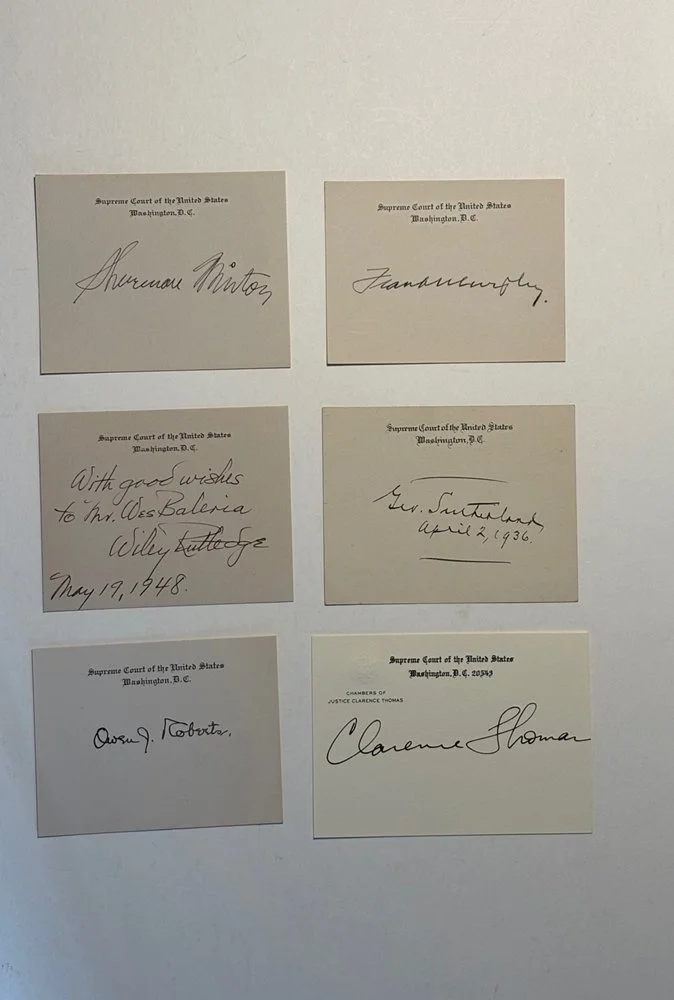 Supreme Court of the United States
Washington, D.C.
Sherman Minton
Supreme Court of the United States
Washington, D.C.
Frank Murphy.
Supreme Court of the United States
Washington, D.C.
With good wishes
to Mr. Wes Baleria
Wiley Rutledge
May 19, 1948.
Supreme Court of the United States
Washington, D.C.
Geo. Sutherland
April 2, 1936.
Supreme Court of the United States
Washington, D.C.
Owen J. Roberts.
Supreme Court of the United States
Washington, D. C. 20543
CHAMBERS OF
JUSTICE CLARENCE THOMAS
Clarence Thomas